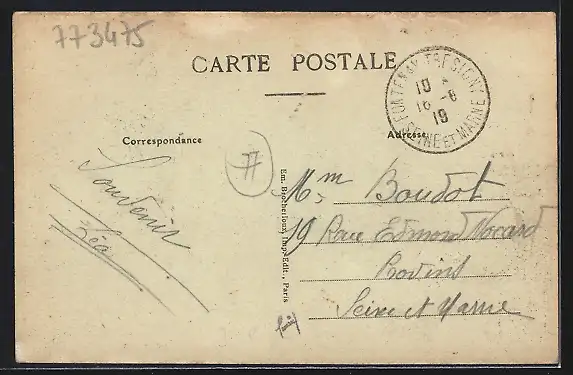 773475
CARTE POSTALE
FONTENAY TRESIGNY
10
16 - 8
19
SEINE ET MARNE
Correspondance
Adresse
Souvenir
Léa
Em. Brocherioux, Imp.-Edit., Paris
Mme Boudot
19 Rue Edmond Nocard
Provins
Seine et Marne